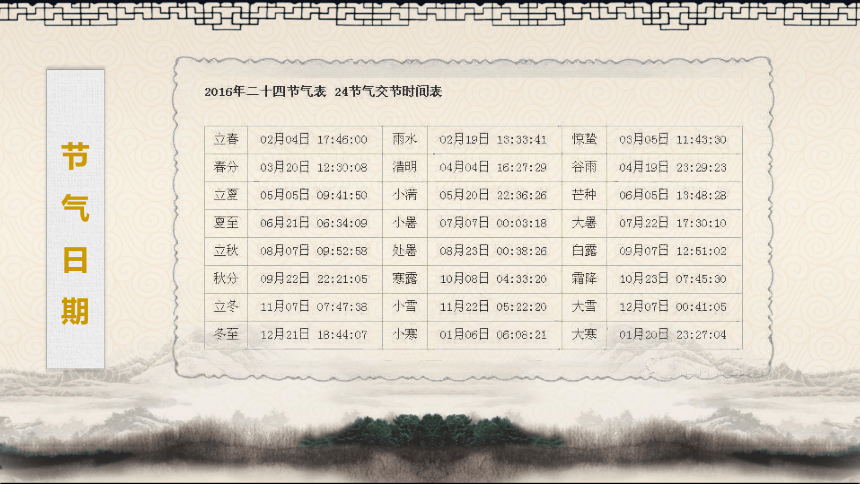 节气日期
2016年二十四节气表 24节气交节时间表
立春 02月04日 17:46:00 雨水 02月19日 13:33:41 惊蛰 03月05日 11:43:30
春分 03月20日 12:30:08 清明 04月04日 16:27:29 谷雨 04月19日 23:29:23
立夏 05月05日 09:41:50 小满 05月20日 22:36:26 芒种 06月05日 13:48:28
夏至 06月21日 06:34:09 小暑 07月07日 00:03:18 大暑 07月22日 17:30:10
立秋 08月07日 09:52:58 处暑 08月23日 00:38:26 白露 09月07日 12:51:02
秋分 09月22日 22:21:05 寒露 10月08日 04:33:20 霜降 10月23日 07:45:30
立冬 11月07日 07:47:38 小雪 11月22日 05:22:20 大雪 12月07日 00:41:05
冬至 12月21日 18:44:07 小寒 01月06日 06:08:21 大寒 01月20日 23:27:04